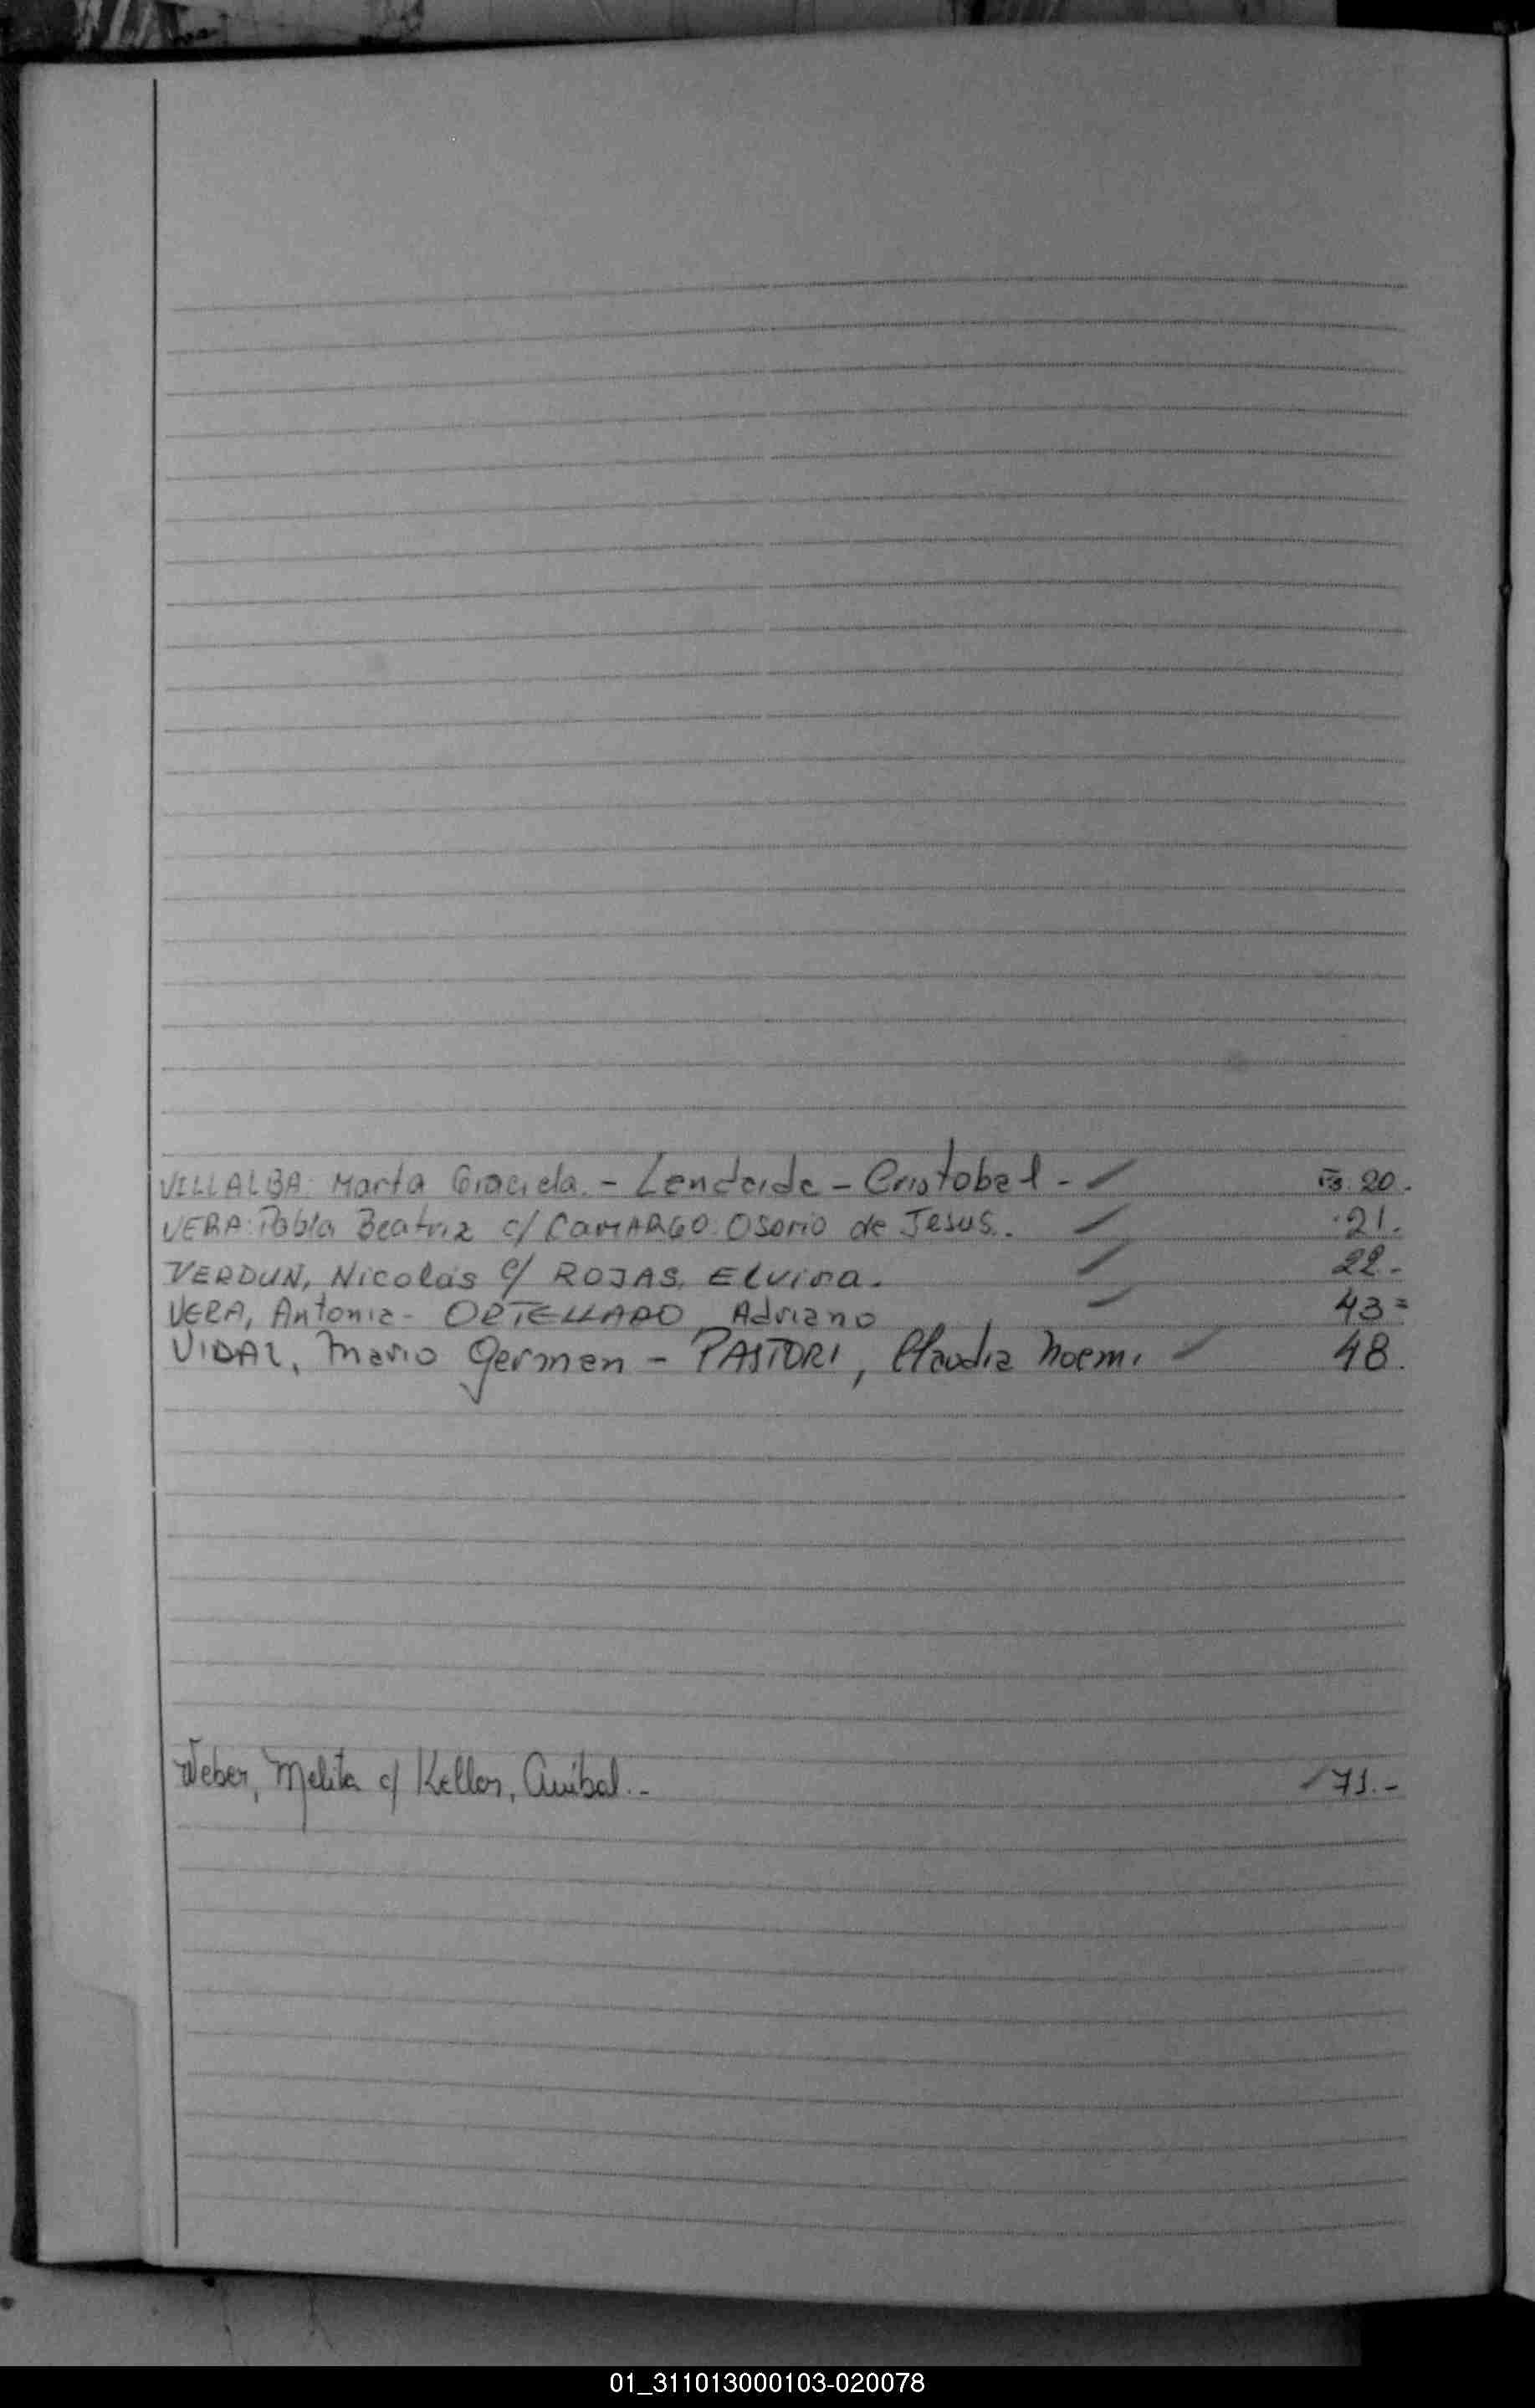 VILLALBA: Marta Graciela. - Lendeide - Cristobal - Fs. 20.
VERA: Pabla Beatriz c/ CAMARGO: Osorio de Jesus. . 21.
VERDUN, Nicolás c/ ROJAS, Elvira. 22.-
VERA, Antonia - ORTELLADO, Adriano 43=
VIDAL, Mario German - PASTORI, Claudia Noemi 48.
Weber, Melita c/ Keller, Anibal.- 71.-
01_311013000103-020078